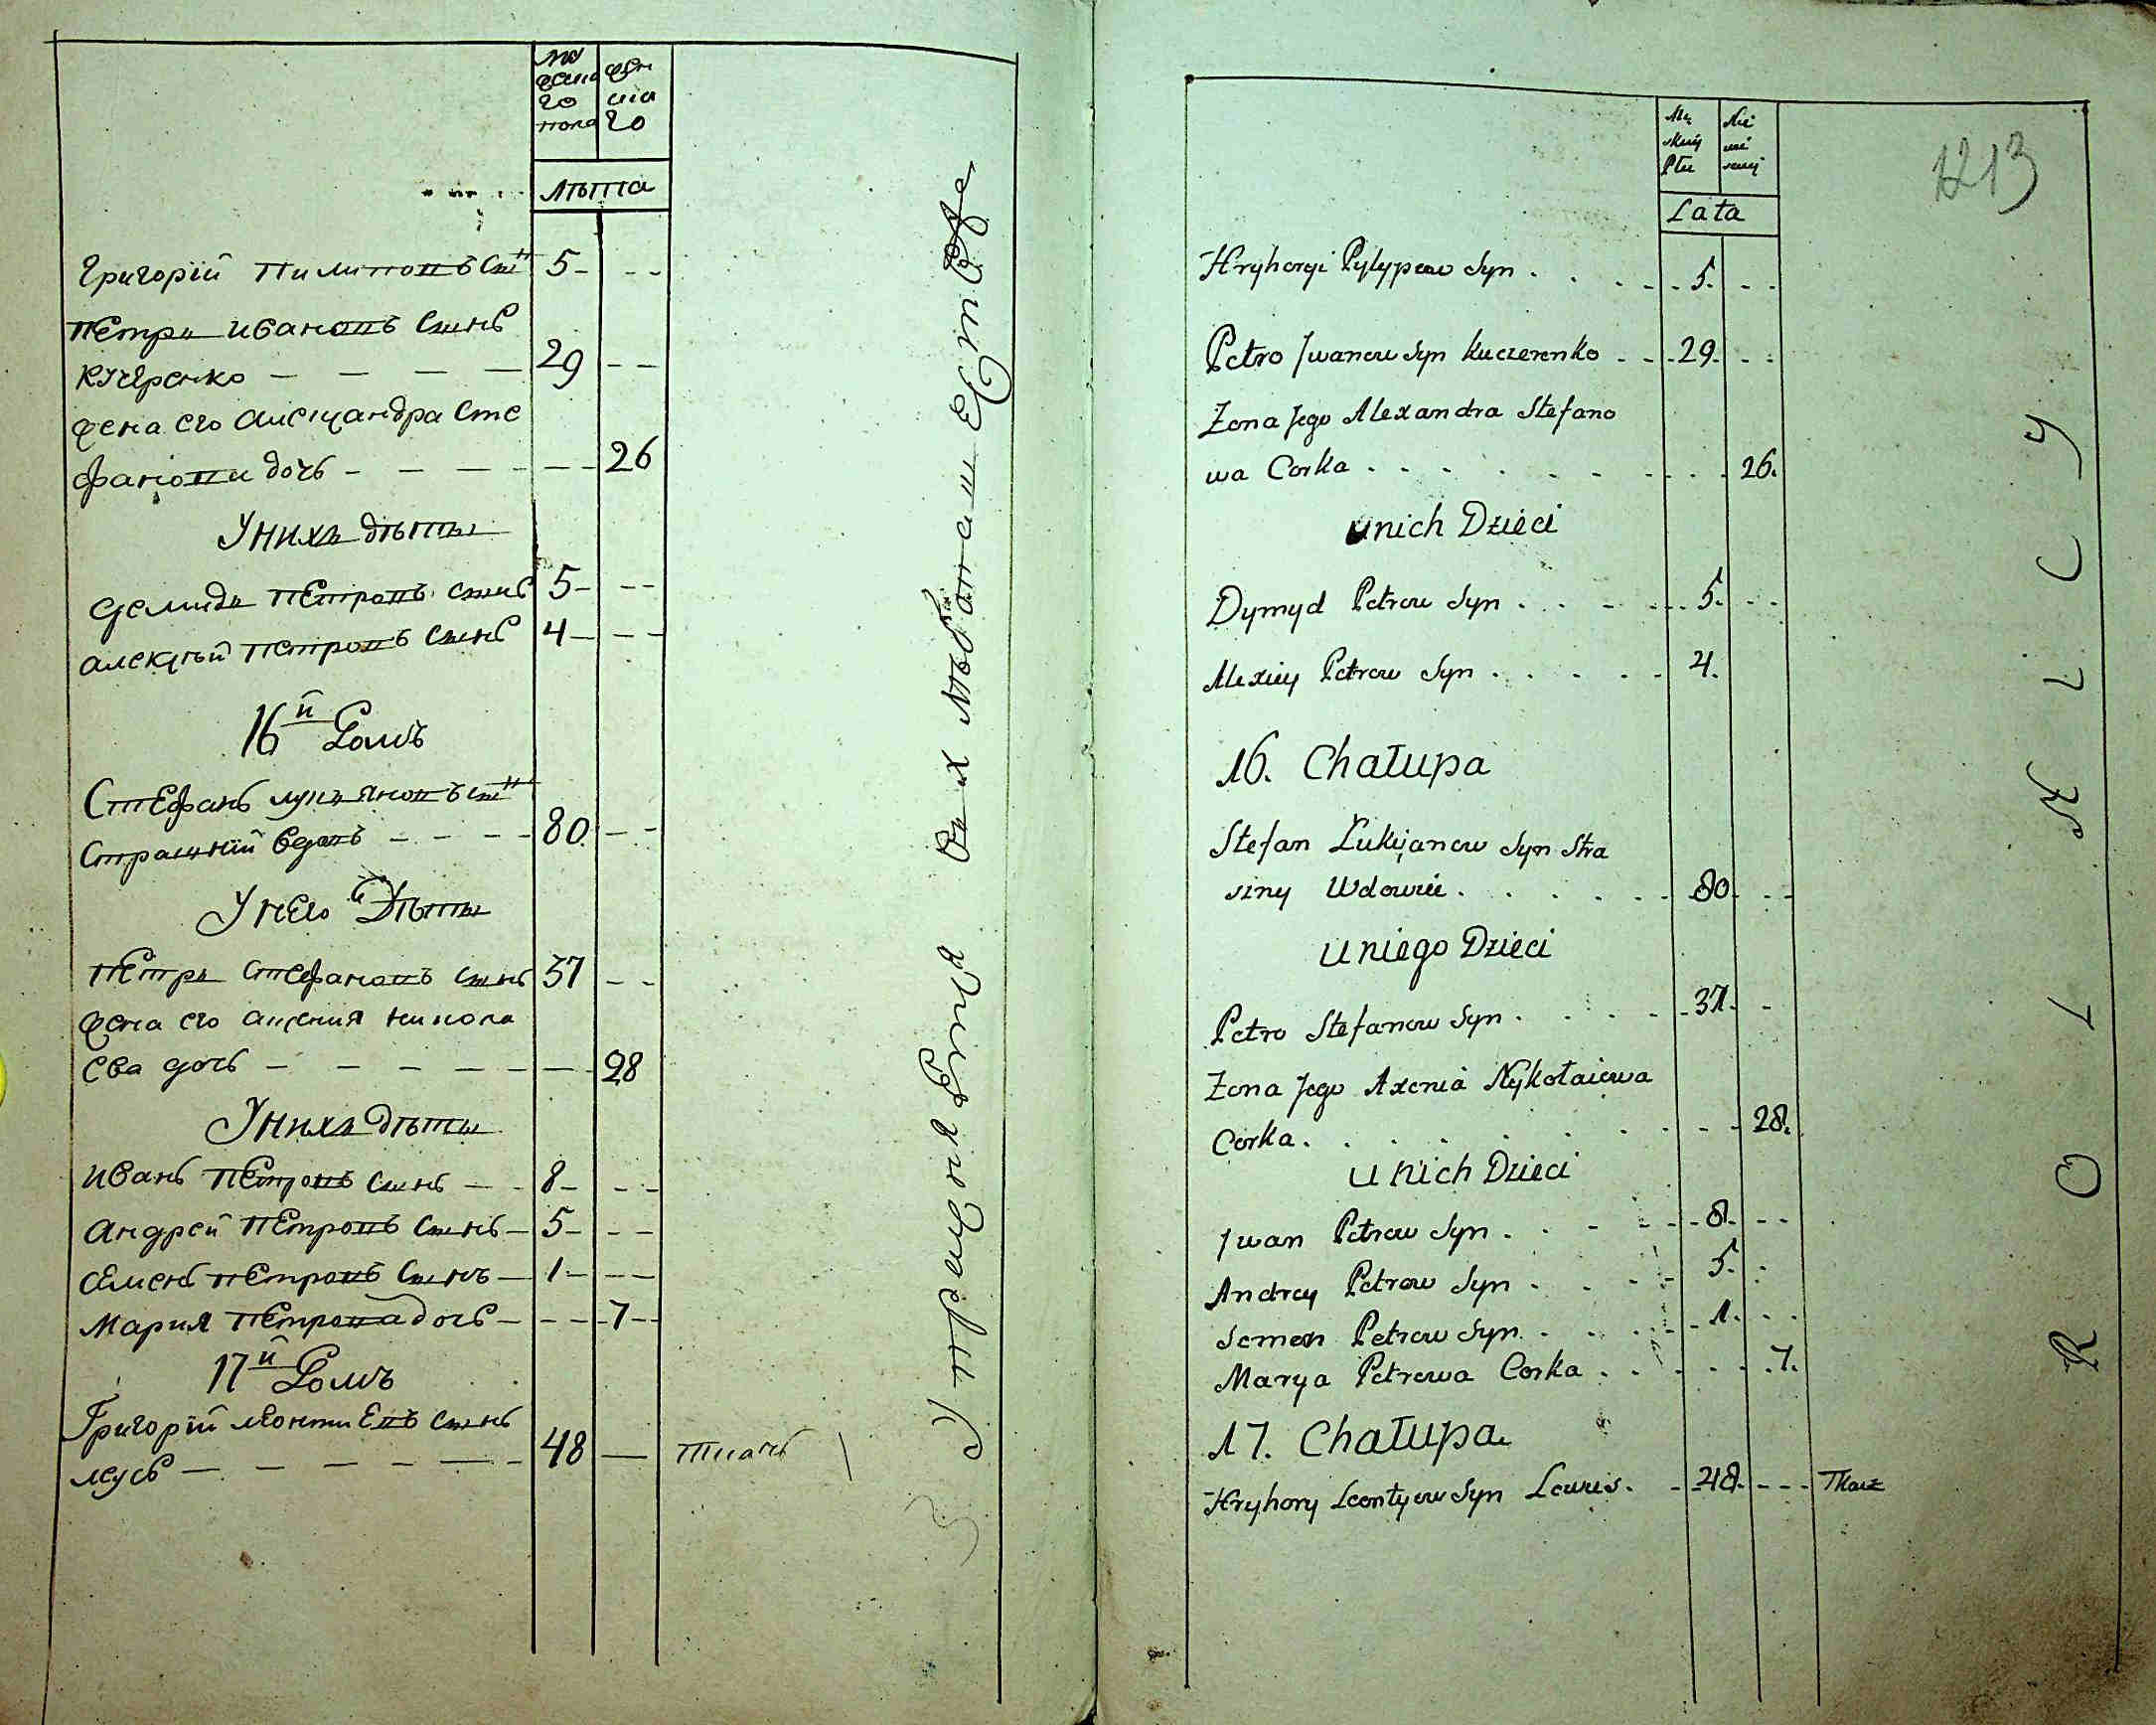 му
жеска
го
пола
жен
ска
го
лѣта
Григорій Пилиповъ сынъ 5 - - -
Петръ Ивановъ сынъ
Кучеренко - - - - 29 - -
жена его Александра Сте
фанова дочь - - - - - - 26
У нихъ дѣти
Демидъ Петровъ сынъ 5 - - -
Алексѣй Петровъ сынъ 4 - - -
16й Домъ
Стефанъ Лукьяновъ сынъ
Страшній вдовъ - - - - 80 - -
У него дѣти
Петръ Стефановъ сынъ 37 - -
жена его Аксения Никола
ева дочь - - - - - - - 28
У нихъ дѣти
Иванъ Петровъ сынъ - - 8 - - -
Андрей Петровъ сынъ - 5 - - -
Семенъ Петровъ сынъ - 1 - - -
Мария Петрова дочь - - - - 7 - -
17й Домъ
Григорій Леонтиевъ сынъ
Леусъ - - - - - - 48 — Ткачъ
1213
Mę
skiej
Płci
Nie
wie
sciej
Lata
Hryhoryi Pylypow Syn . . . . . 5. - -
Petro Jwanow Syn Kuczerenko - - . 29. - -
Żona Jego Alexandra Stefano
wa Corka . . . . . . . . . . 26.
u nich Dzieci
Dymyd Petrow Syn . . . . . 5. - -
Alexiey Petrow Syn . . . . . 4.
16. Chałupa
Stefan Łukijanow Syn Stra
szny Wdowiec . . . . . . 80 . -
u niego Dzieci
Petro Stefanow Syn . . . . . 37. -
Żona Jego Axenia Nykołaiewa
Corka . . . . . . . . . 28.
u nich Dzieci
Jwan Petrow Syn . . . . . 8. - -
Andrey Petrow Syn . . . . 5. .
Semen Petrow Syn . . . . . 1. . .
Marya Petrowa Corka . . . . . . 7.
17. Chałupa
Hryhory Leontyew Syn Lewus . . 48. - - - Tkacz